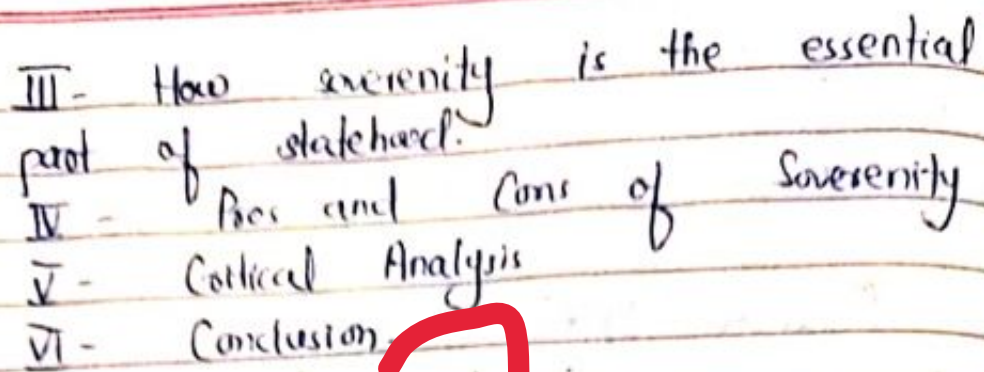 III - How soverenity is the essential
part of statehood.
IV - Pros and Cons of Soverenity
V - Critical Analysis
VI - Conclusion